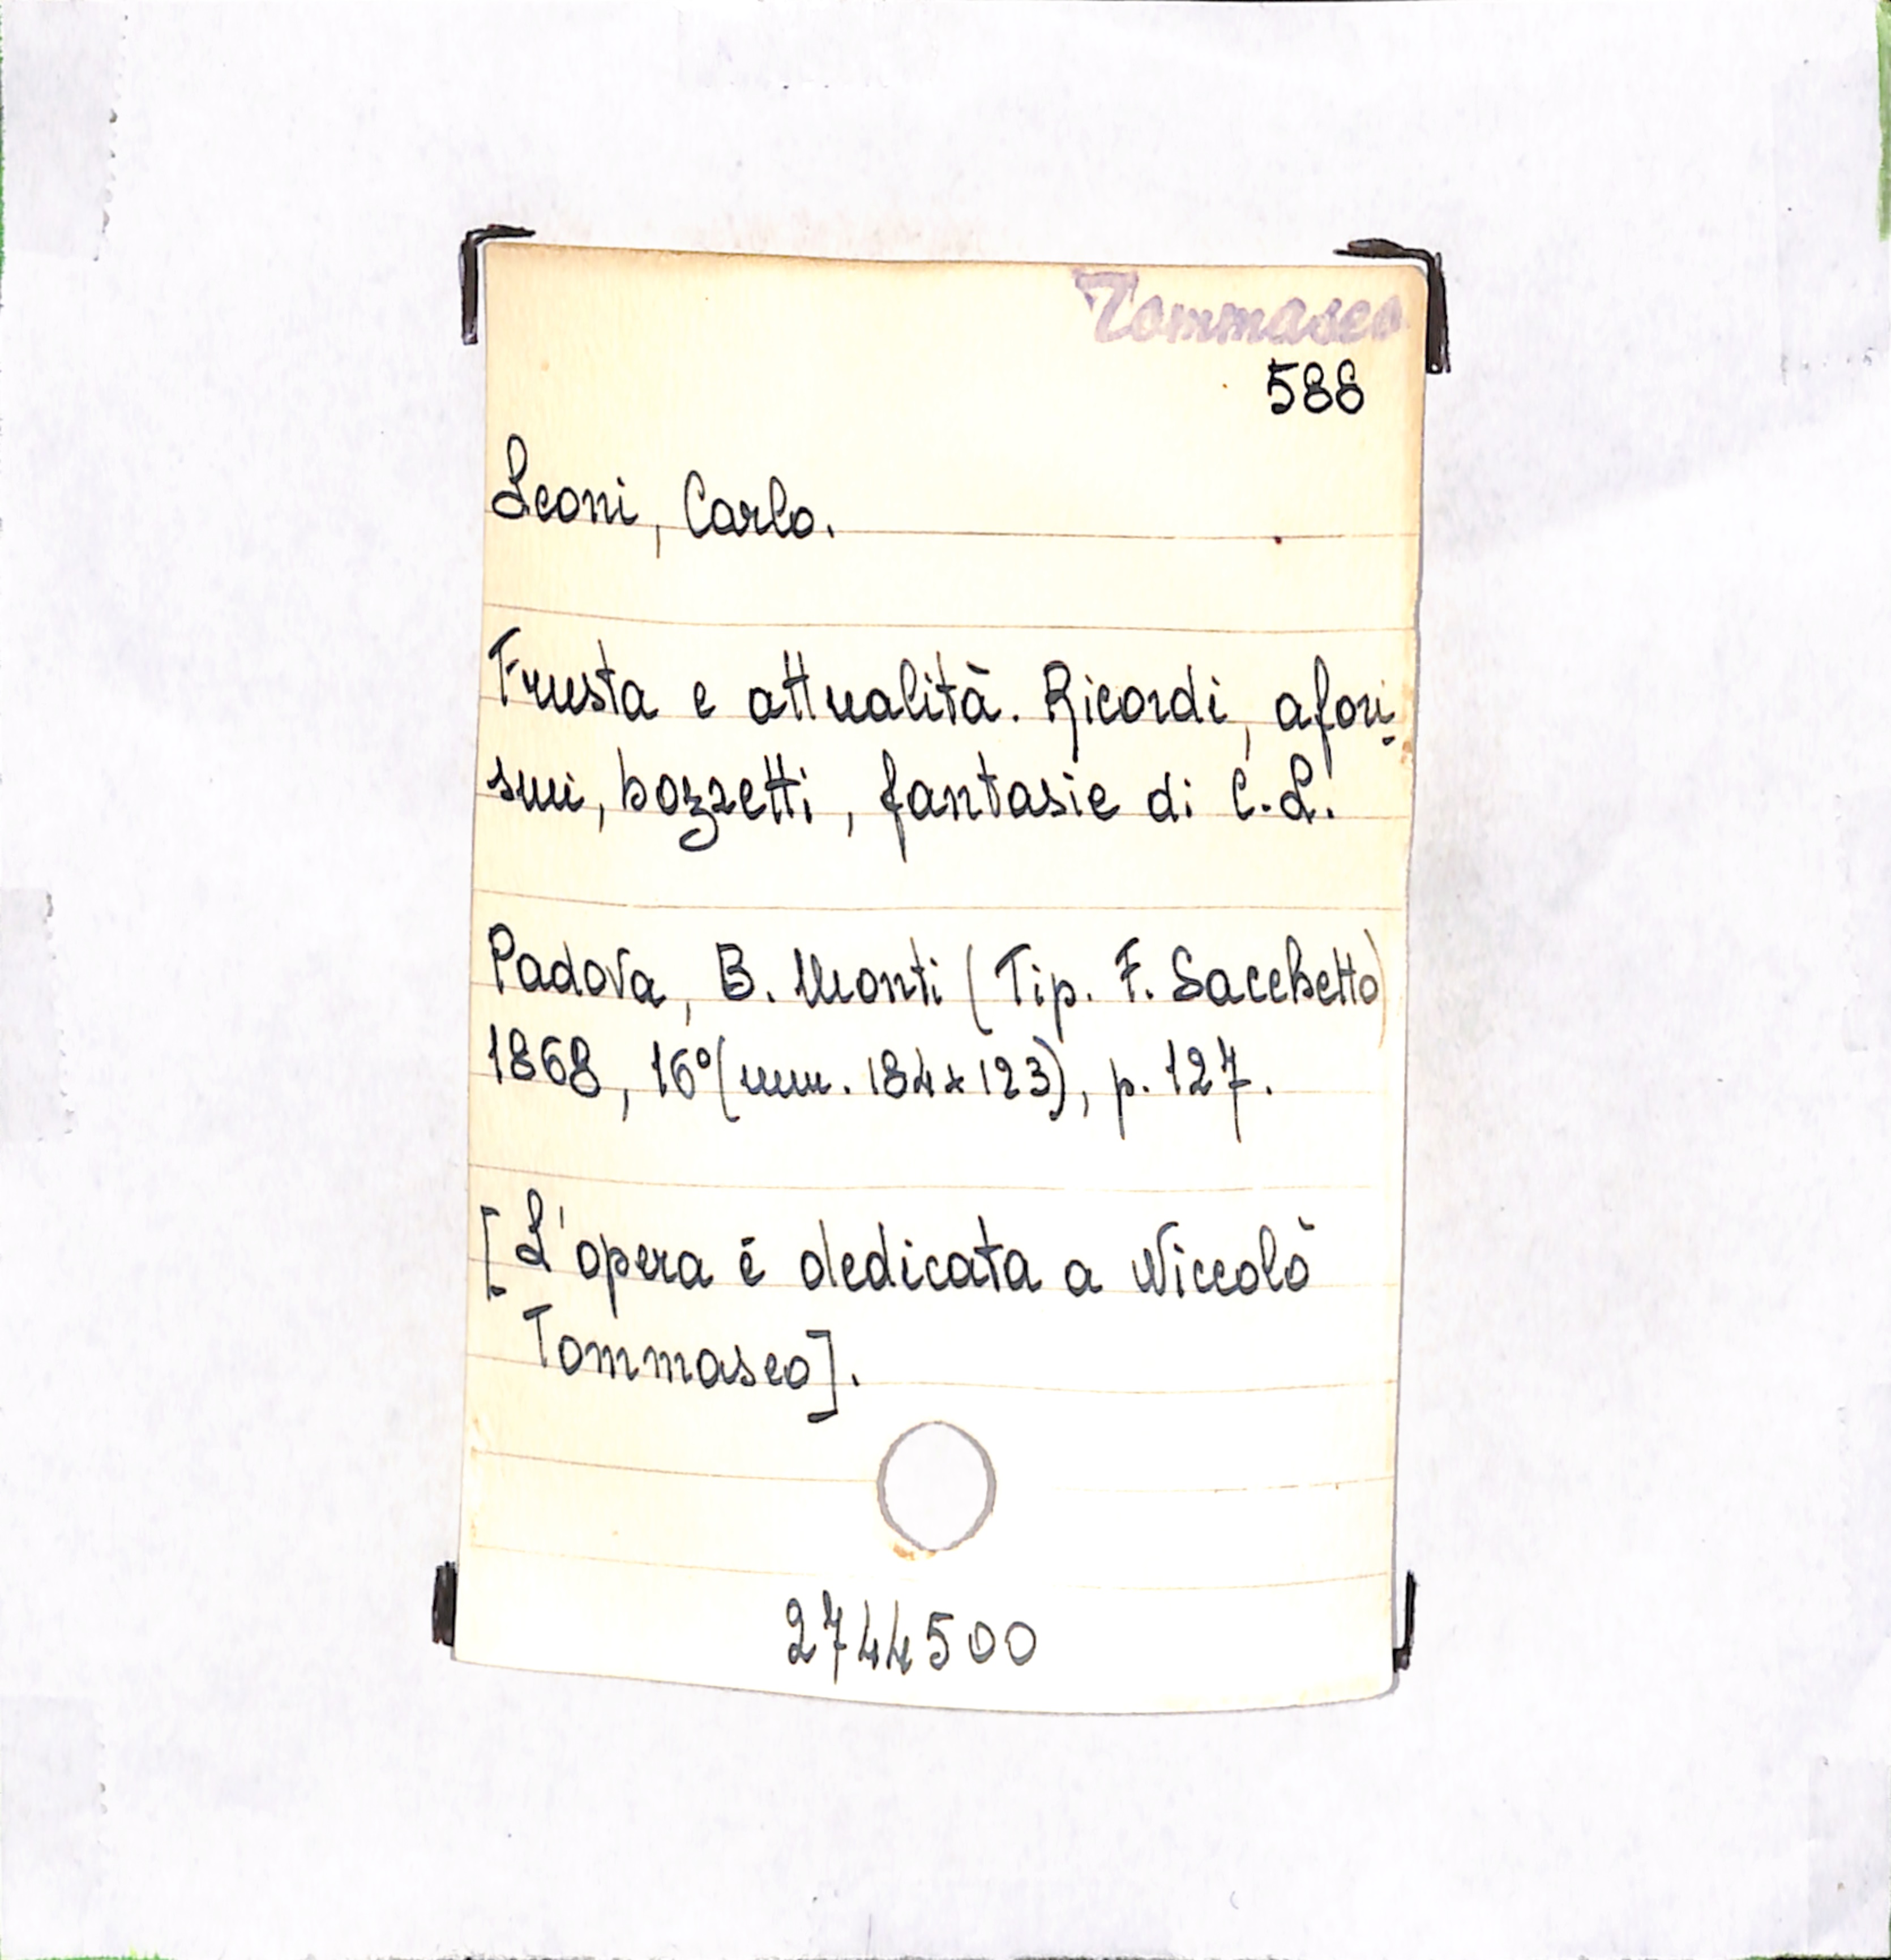 Tommaseo
588
Leoni, Carlo.
Frusta e attualità. Ricordi, afori-
smi, bozzetti, fantasie di C. L.
Padova, B. Monti (Tip. F. Sacchetto)
1868, 16° (mm. 184x123), p. 127.
[L'opera è dedicata a Niccolò
Tommaseo].
2744500